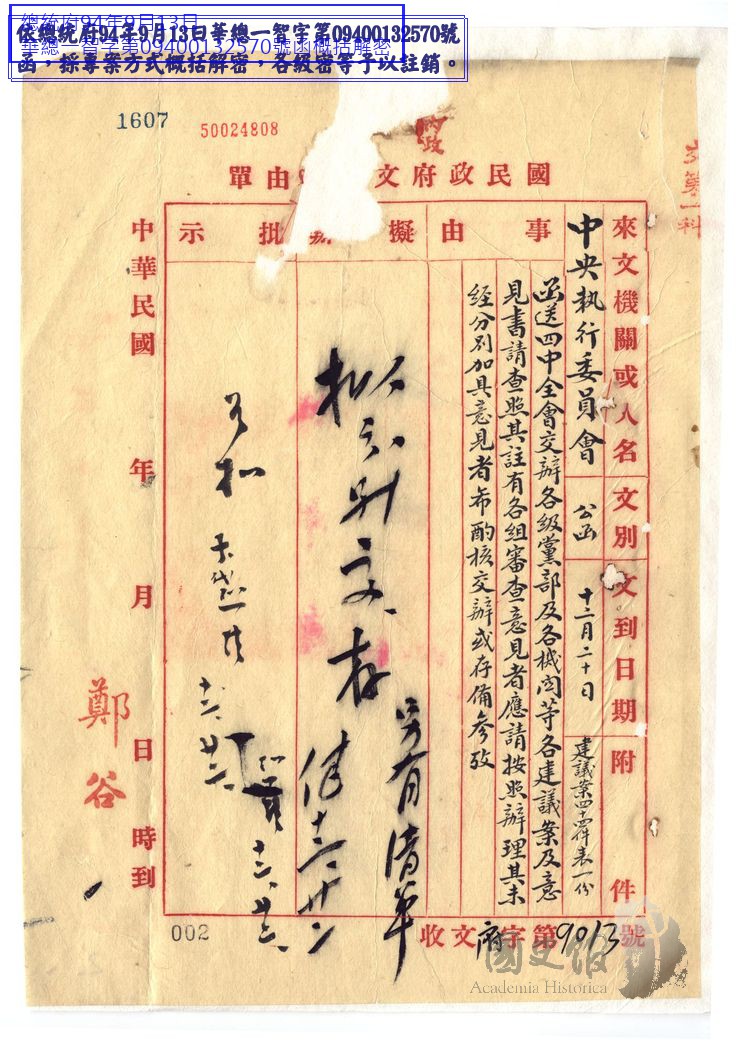 總統府94年9月13日
華總一智字第09400132570號函概括解密
依總統府94年9月13日華總一智字第09400132570號
函，採專案方式概括解密，各級密等予以註銷。
1607
50024808
國民政府文
由單
來文機關或人名
中央執行委員會
文別
公函
文到日期
十二月二十日
附件
建議案四十四件表一份
事由
函送四中全會交辦各級黨部及各機關等各建議案及意
見書請查照其註有各組審查意見者應請按照辦理其未
經分別加具意見者希酌核交辦或存備參攷
擬辦
擬分別交存
另有清單
批示
中華民國 年 月 日 時到
鄭谷
收文府字第9013號
002
國史館
Academia Historica